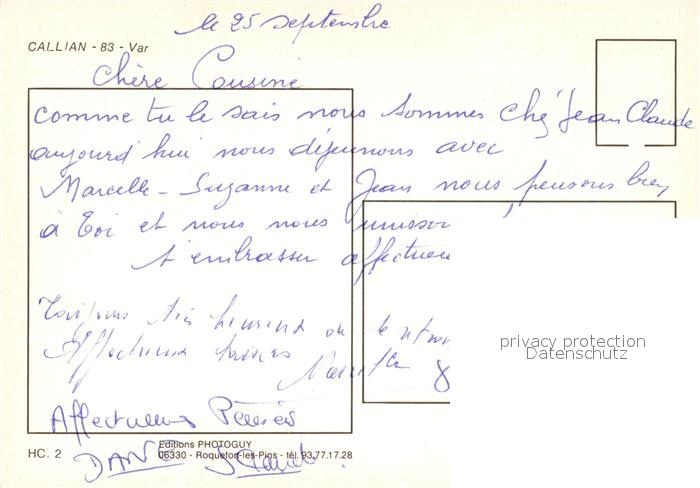 le 25 septembre
CALLIAN - 83 - Var
Chère Cousine
comme tu le sais nous sommes ché Jean Claude
aujourd'hui nous déjeunons avec
Marcelle - Suzanne et Jean nous pensons bien
à Toi et nous nous unisso
t'embrasser affectueu
Toujours très heureux de te
Affectueux baisers
Affectueuses Pensées
HC. 2
Editions PHOTOGUY
06330 - Roquefort-les-Pins - tél. 93.77.17.28
privacy protection
Datenschutz